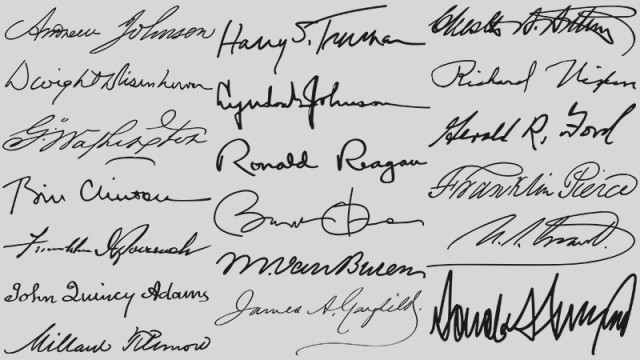 Andrew Johnson
Dwight D Eisenhower
G. Washington
Bill Clinton
Franklin D Roosevelt
John Quincy Adams
Millard Fillmore
Harry S. Truman
Lyndon B Johnson
Ronald Reagan
Barack Obama
M. Van Buren
James A. Garfield
Chester A. Arthur
Richard Nixon
Gerald R. Ford
Franklin Pierce
U. S. Grant
Donald J Trump